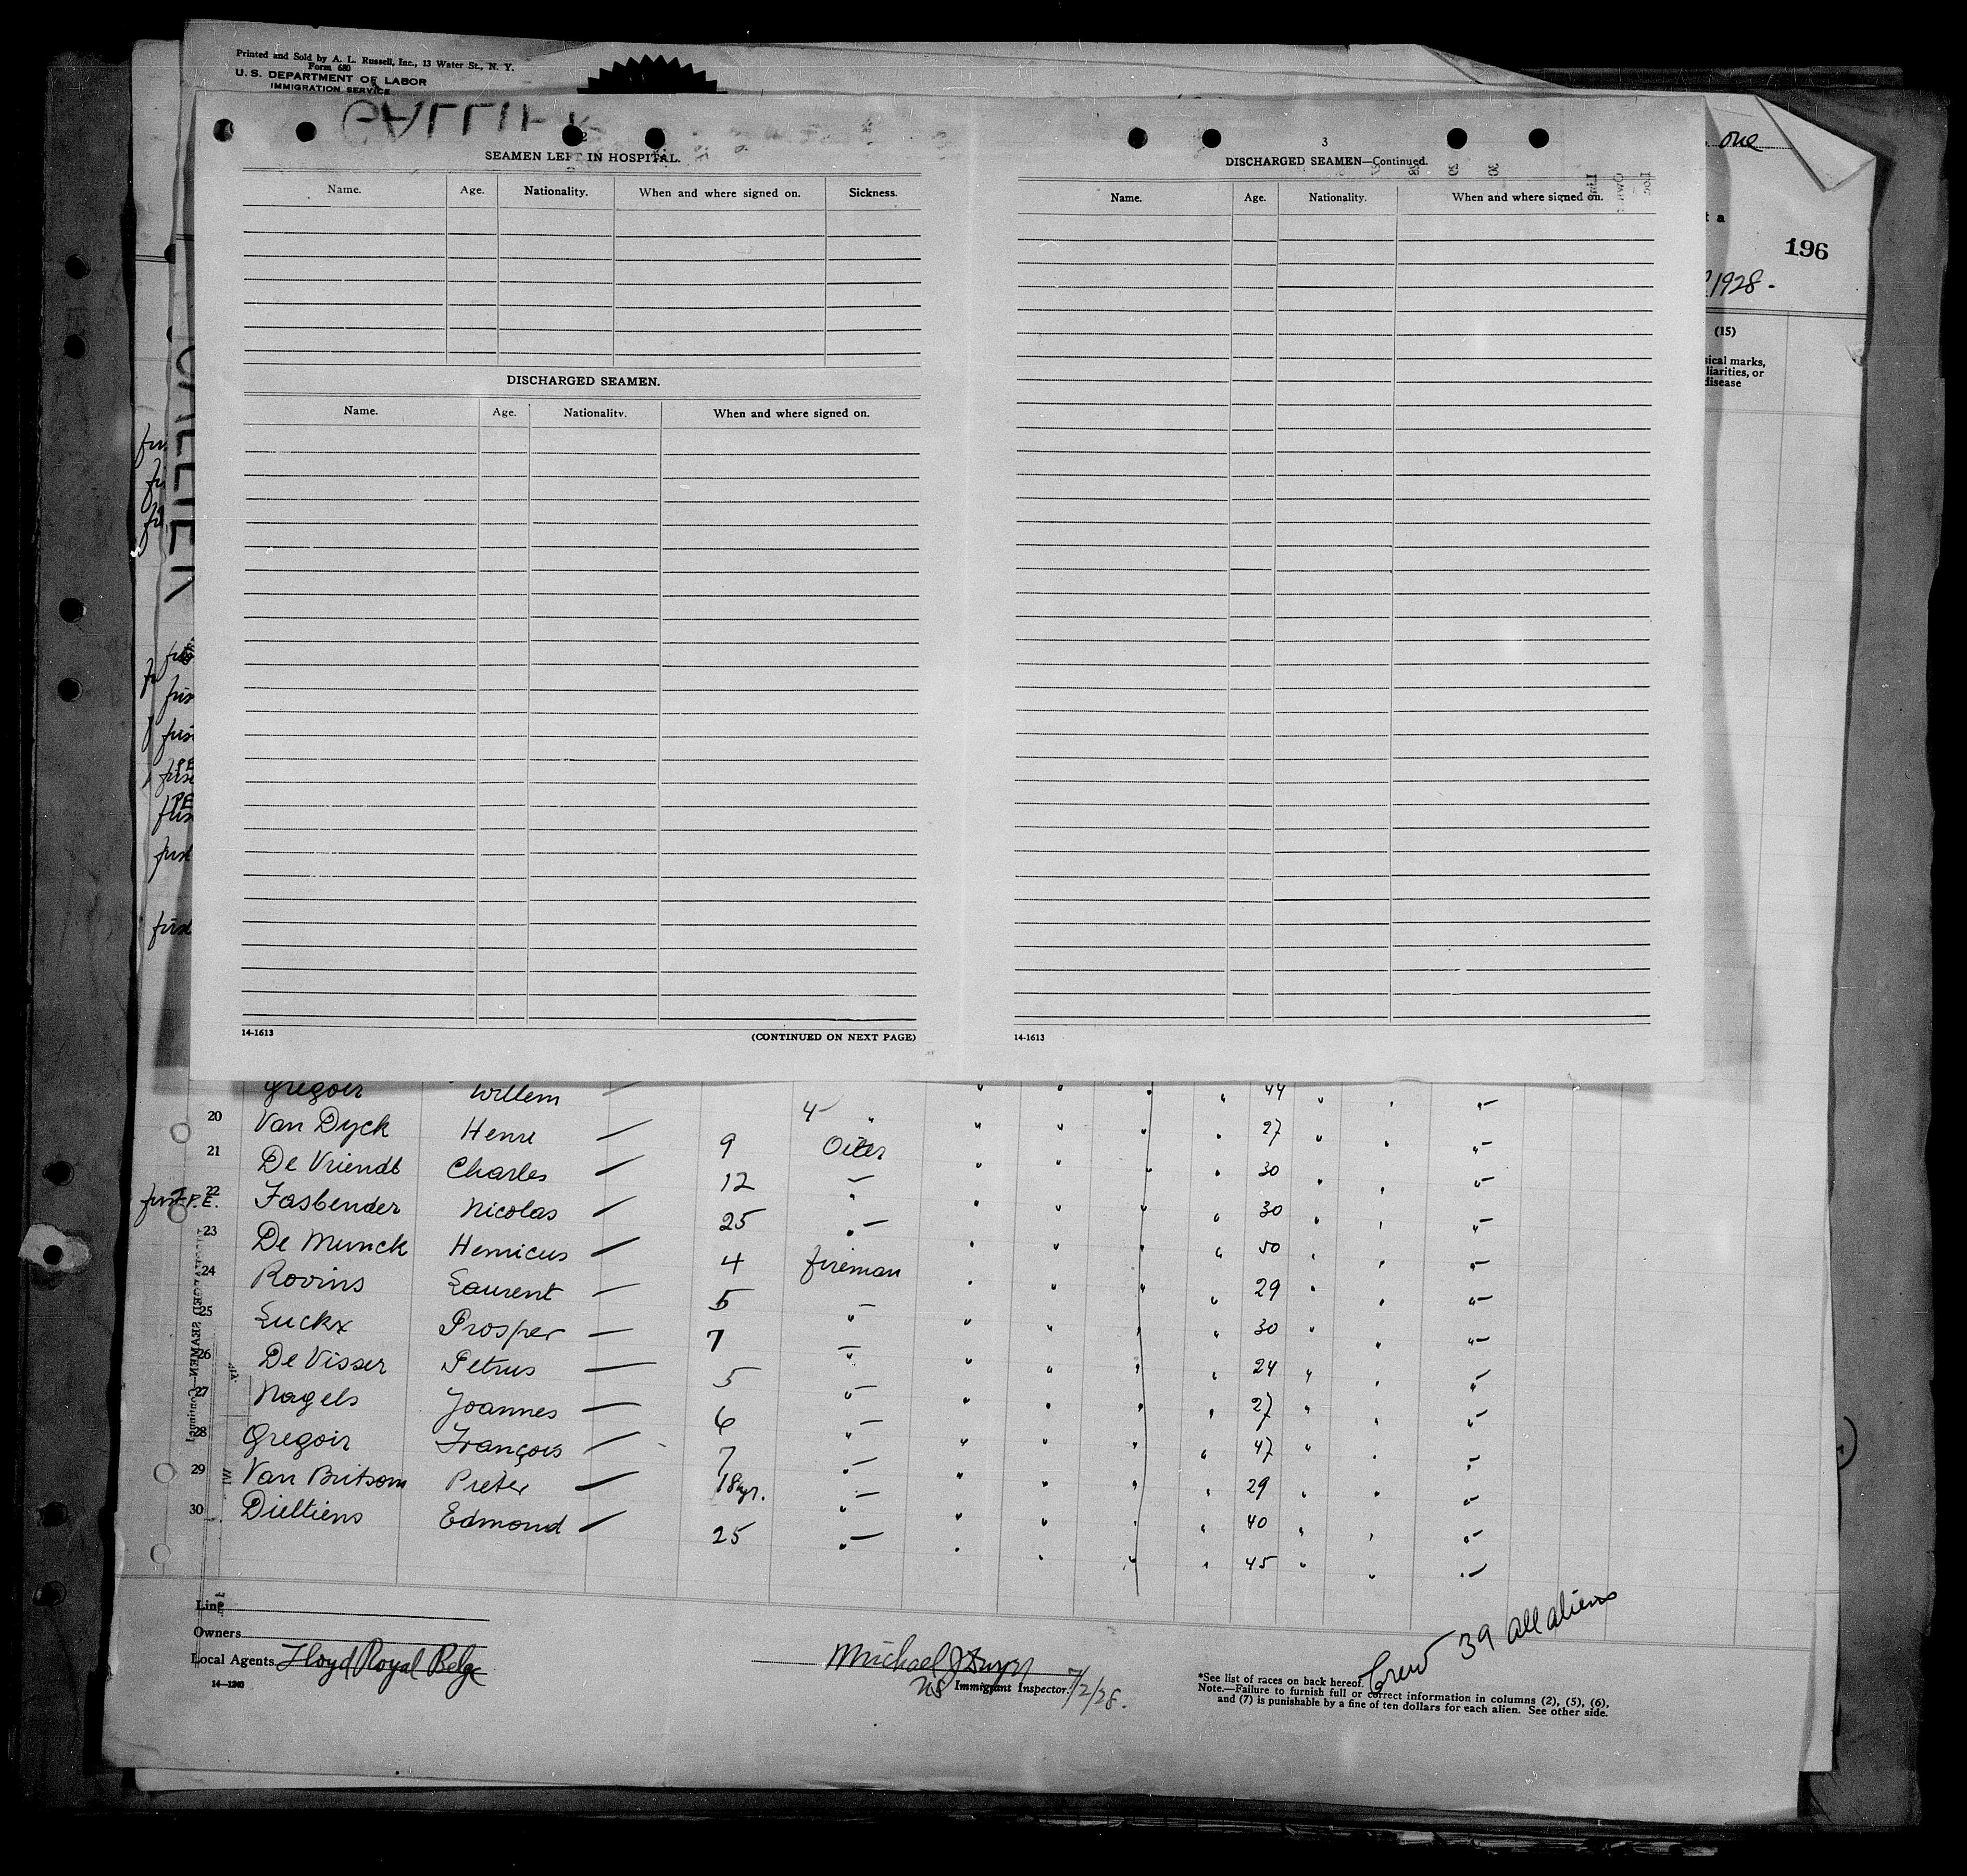 Printed and Sold by A. L. Russell, Inc., 13 Water St., N. Y.
Form 680
U. S. DEPARTMENT OF LABOR
IMMIGRATION SERVICE
one
196
1928.
(15)
2
SEAMEN LEFT IN HOSPITAL.
Name. Age. Nationality. When and where signed on. Sickness.
DISCHARGED SEAMEN.
Name. Age. Nationality. When and where signed on.
14-1613 (CONTINUED ON NEXT PAGE)
3
DISCHARGED SEAMEN—Continued.
Name. Age. Nationality. When and where signed on.
14-1613
Gregoir Willem 4 " " " " " 44 " " "
20 Van Dyck Henri 9 Oiler " " " " 27 " " "
21 De Vriendt Charles 12 " " " " " 30 " " "
22 Fasbender Nicolas 25 " " " " " 30 " " "
23 De Munck Henricus 4 fireman " " " " 50 " " "
24 Rovins Laurent 5 " " " " " 29 " " "
25 Luckx Prosper 7 " " " " " 30 " " "
26 De Visser Petrus 5 " " " " " 24 " " "
27 Nagels Joannes 6 " " " " " 27 " " "
28 Gregoir François 7 " " " " " 47 " " "
29 Van Britsom Pieter 18yr. " " " " " 29 " " "
30 Dieltiens Edmond 25 " " " " " 40 " " "
45 " " "
Line
Owners
Local Agents Lloyd Royal Belge
14—1240
Michael J
US Immigrant Inspector. 7/2/28.
Crew 39 all aliens
*See list of races on back hereof.
Note.—Failure to furnish full or correct information in columns (2), (5), (6),
and (7) is punishable by a fine of ten dollars for each alien. See other side.